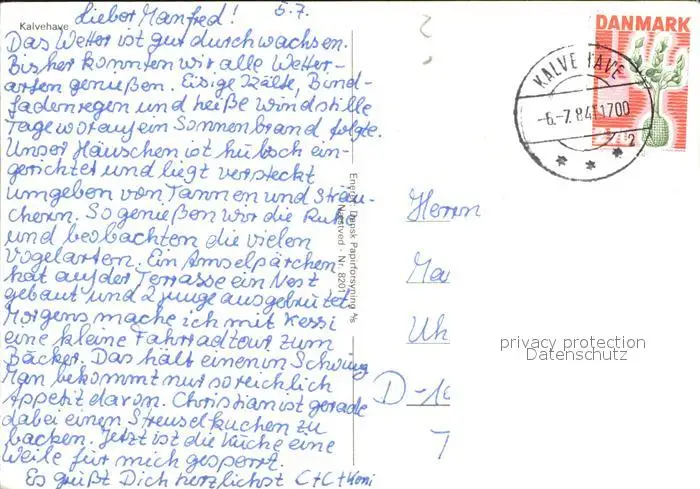 Kalvehave
Lieber Manfred! 5.7.
Das Wetter ist gut durchwachsen.
Bisher konnten wir alle Wetter-
arten genießen. Eisige Kälte, Bind-
fadenregen und heiße windstille
Tage worauf ein Sonnenbrand folgte.
Unser Häuschen ist hübsch ein-
gerichtet und liegt versteckt
umgeben von Tannen und Sträu-
chern. So genießen wir die Ruhe
und beobachten die vielen
Vogelarten. Ein Amselpärchen
hat auf der Terrasse ein Nest
gebaut und 2 junge ausgebrütet.
Morgens mache ich mit Kerri
eine kleine Fahrradtour zum
Bäcker. Das hält einen in Schwung
Man bekommt nur so reichlich
Appetit davon. Christian ist gerade
dabei einen Streuselkuchen zu
backen. Jetzt ist die Küche eine
Weile für mich gesperrt.
Es grüßt Dich herzlichst C+C+Koni
Eneret: Dansk Papirforsyning A/s
Næstved - Nr. 8201
DANMARK
KALVEHAVE
-6.-7.84 1700
Herrn
Ma
Uh
D-10
privacy protection
Datenschutz